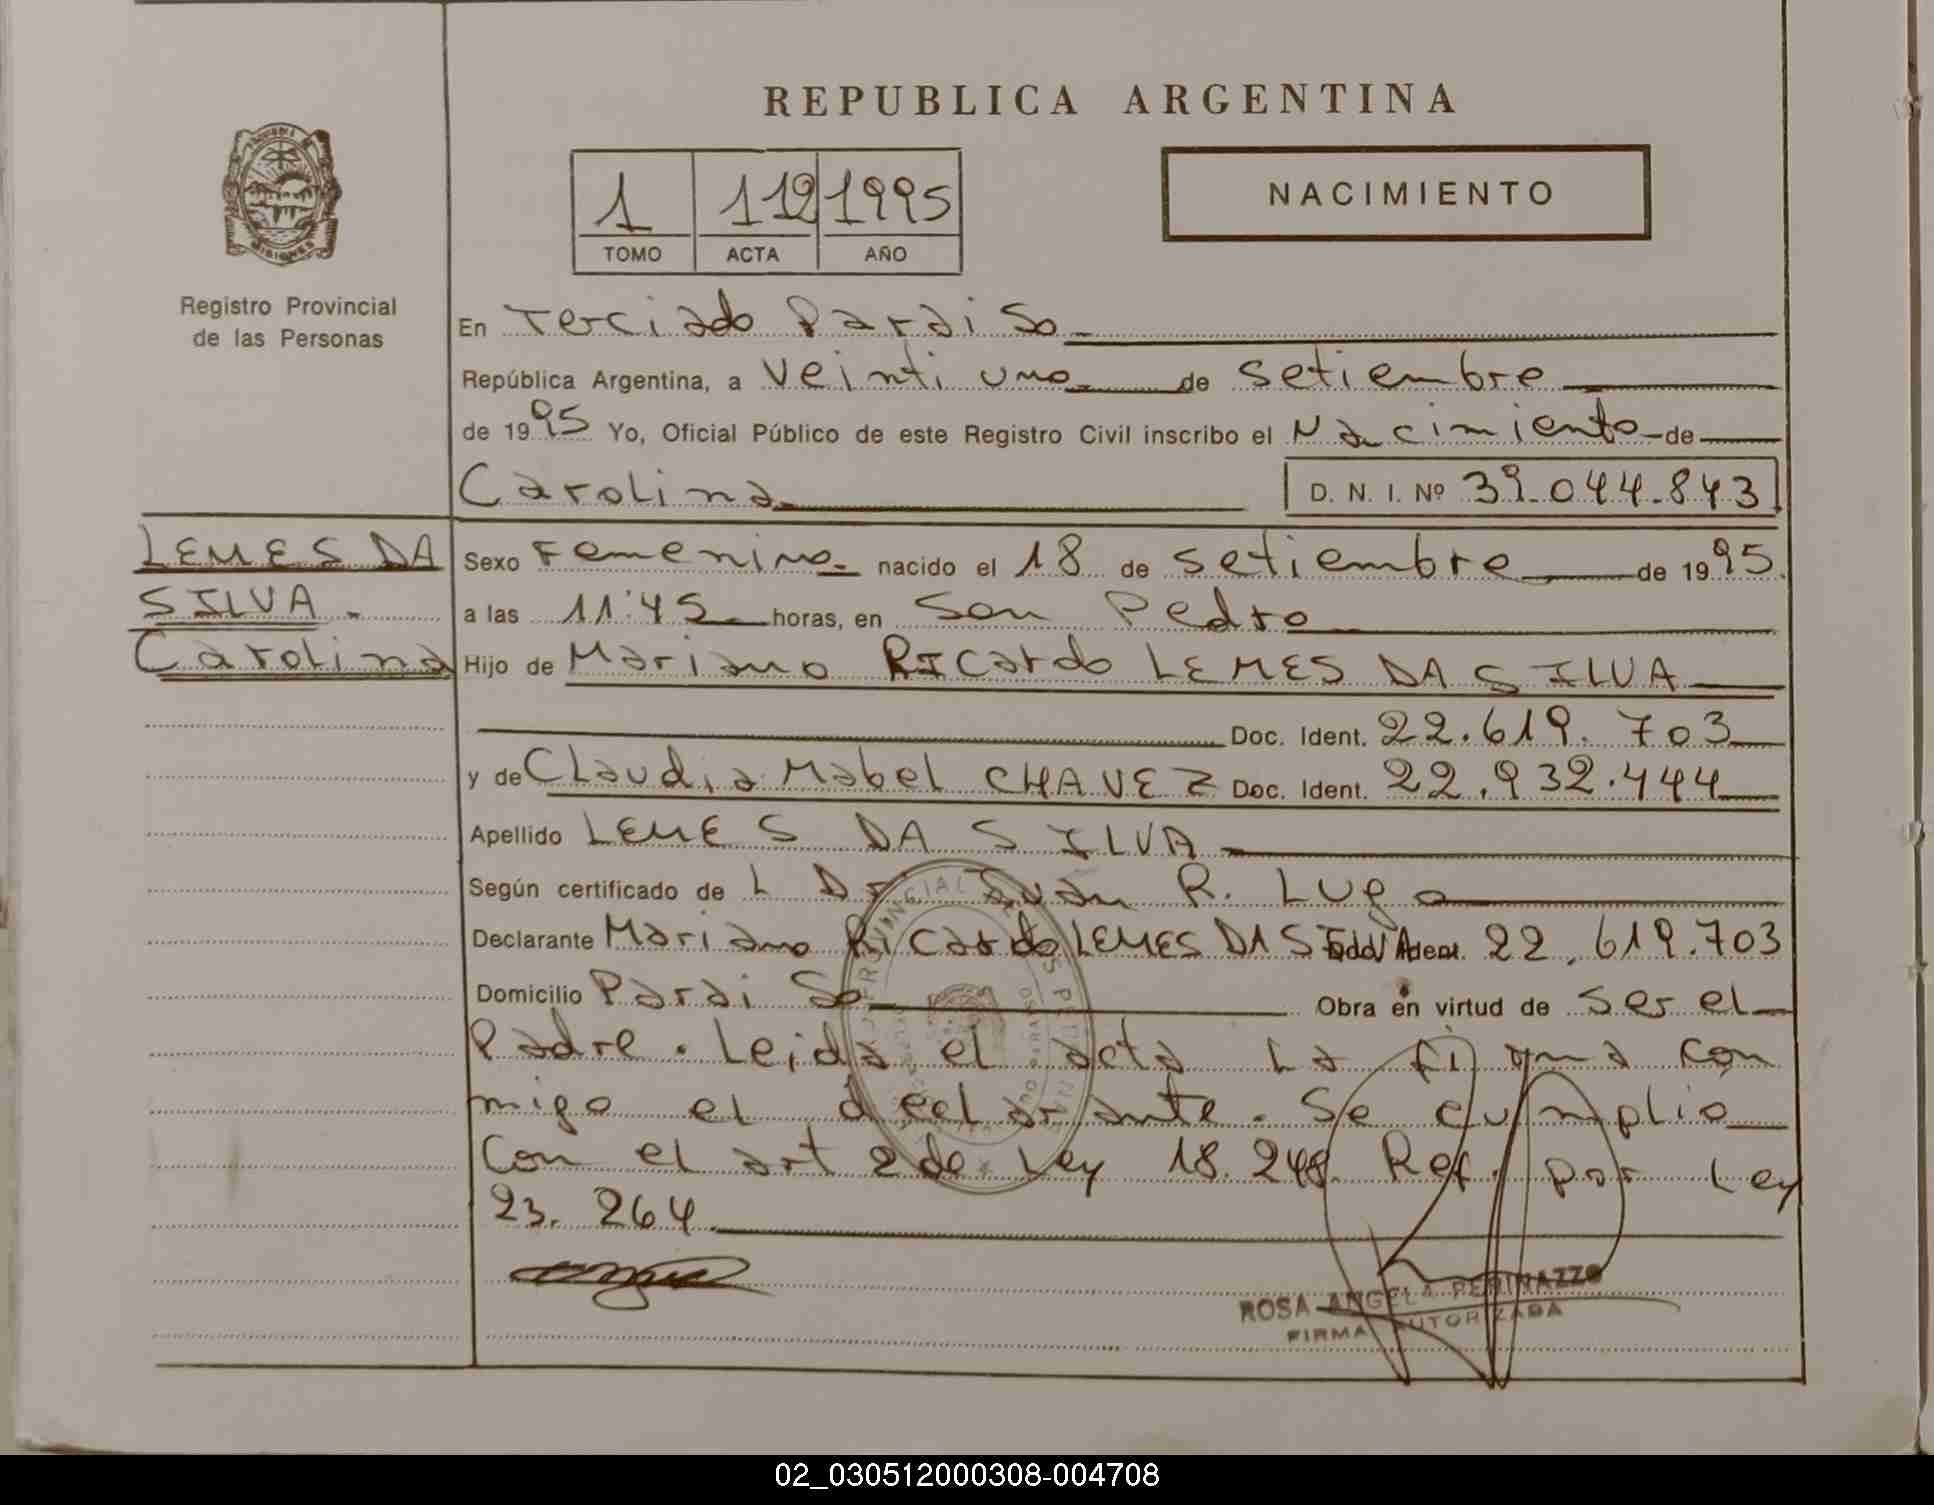 REPUBLICA ARGENTINA
NACIMIENTO
1 112 1995
TOMO ACTA AÑO
MISIONES
Registro Provincial
de las Personas
En Terciado Paraiso
República Argentina, a Veinti uno de Setiembre
de 1995 Yo, Oficial Público de este Registro Civil inscribo el Nacimiento de
Carolina D. N. I. Nº 39.044.843
LEMES DA
SILVA.
Carolina
Sexo Femenino nacido el 18 de Setiembre de 1995
a las 11:45 horas, en San Pedro
Hijo de Mariano Ricardo LEMES DA SILVA
Doc. Ident. 22.619.703
y de Claudia Mabel CHAVEZ Doc. Ident. 22.932.444
Apellido LEMES DA SILVA
Según certificado de L Dr Juan R. Lugo
Declarante Mariano Ricardo LEMES DA SILVA 22.619.703
Domicilio Paraiso Obra en virtud de Ser el
Padre. Leida el acta La firma con
migo el declarante. Se cumplio
Con el art 2 de Ley 18.248 Ref. por Ley
23.264
ROSA ANGELA PERINAZZO
FIRMA AUTORIZADA
02_030512000308-004708